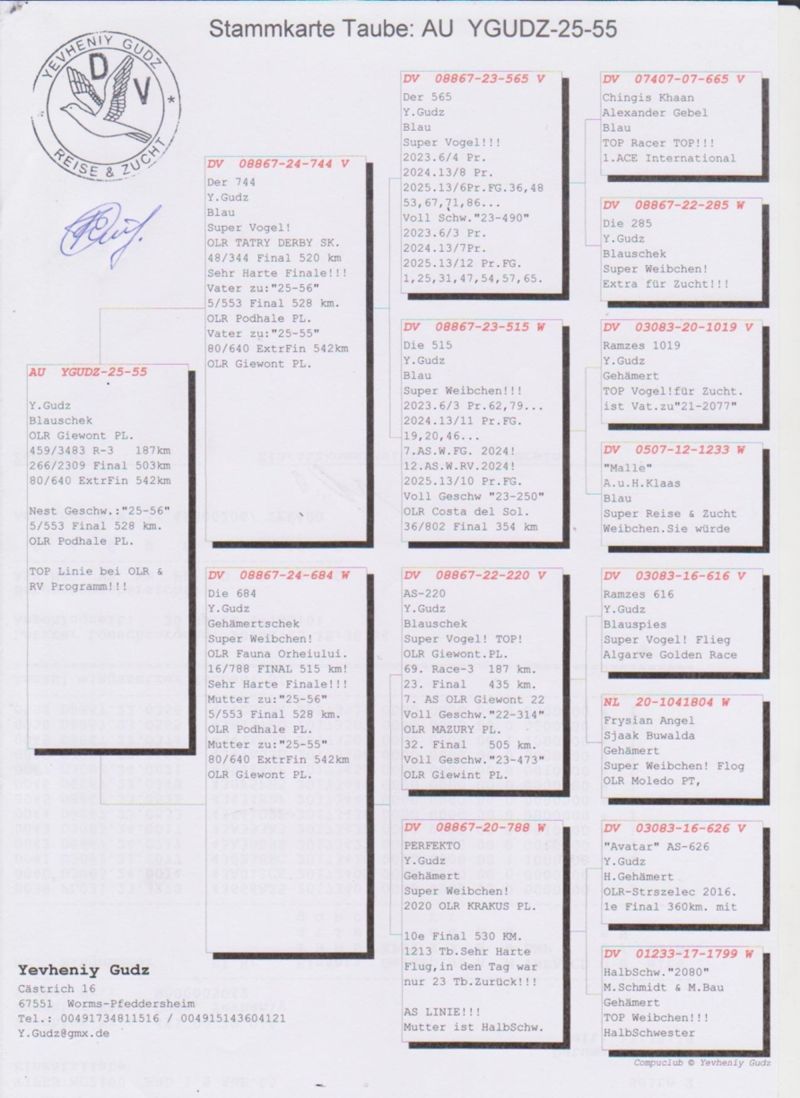 Stammkarte Taube: AU YGUDZ-25-55
YEVHENIY GUDZ
D V
REISE & ZUCHT *
AU YGUDZ-25-55
Y.Gudz
Blauschek
OLR Giewont PL.
459/3483 R-3 187km
266/2309 Final 503km
80/640 ExtrFin 542km
Nest Geschw.:"25-56"
5/553 Final 528 km.
OLR Podhale PL.
TOP Linie bei OLR &
RV Programm!!!
DV 08867-24-744 V
Der 744
Y.Gudz
Blau
Super Vogel!
OLR TATRY DERBY SK.
48/344 Final 520 km
Sehr Harte Finale!!!
Vater zu:"25-56"
5/553 Final 528 km.
OLR Podhale PL.
Vater zu:"25-55"
80/640 ExtrFin 542km
OLR Giewont PL.
DV 08867-24-684 W
Die 684
Y.Gudz
Gehämertschek
Super Weibchen!
OLR Fauna Orheiului.
16/788 FINAL 515 km!
Sehr Harte Finale!!!
Mutter zu:"25-56"
5/553 Final 528 km.
OLR Podhale PL.
Mutter zu:"25-55"
80/640 ExtrFin 542km
OLR Giewont PL.
DV 08867-23-565 V
Der 565
Y.Gudz
Blau
Super Vogel!!!
2023.6/4 Pr.
2024.13/8 Pr.
2025.13/6Pr.FG.36,48
53,67,71,86...
Voll Schw."23-490"
2023.6/3 Pr.
2024.13/7Pr.
2025.13/12 Pr.FG.
1,25,31,47,54,57,65.
DV 08867-23-515 W
Die 515
Y.Gudz
Blau
Super Weibchen!!!
2023.6/3 Pr.62,79...
2024.13/11 Pr.FG.
19,20,46...
7.AS.W.FG. 2024!
12.AS.W.RV.2024!
2025.13/10 Pr.FG.
Voll Geschw "23-250"
OLR Costa del Sol.
36/802 Final 354 km
DV 08867-22-220 V
AS-220
Y.Gudz
Blauschek
Super Vogel! TOP!
OLR Giewont.PL.
69. Race-3 187 km.
23. Final 435 km.
7. AS OLR Giewont 22
Voll Geschw."22-314"
OLR MAZURY PL.
32. Final 505 km.
Voll Geschw."23-473"
OLR Giewint PL.
DV 08867-20-788 W
PERFEKTO
Y.Gudz
Gehämert
Super Weibchen!
2020 OLR KRAKUS PL.
10e Final 530 KM.
1213 Tb.Sehr Harte
Flug,in den Tag war
nur 23 Tb.Zurück!!!
AS LINIE!!!
Mutter ist HalbSchw.
DV 07407-07-665 V
Chingis Khaan
Alexander Gebel
Blau
TOP Racer TOP!!!
1.ACE International
DV 08867-22-285 W
Die 285
Y.Gudz
Blauschek
Super Weibchen!
Extra für Zucht!!!
DV 03083-20-1019 V
Ramzes 1019
Y.Gudz
Gehämert
TOP Vogel!für Zucht.
ist Vat.zu"21-2077"
DV 0507-12-1233 W
"Malle"
A.u.H.Klaas
Blau
Super Reise & Zucht
Weibchen.Sie würde
DV 03083-16-616 V
Ramzes 616
Y.Gudz
Blauspies
Super Vogel! Flieg
Algarve Golden Race
NL 20-1041804 W
Frysian Angel
Sjaak Buwalda
Gehämert
Super Weibchen! Flog
OLR Moledo PT,
DV 03083-16-626 V
"Avatar" AS-626
Y.Gudz
H.Gehämert
OLR-Strszelec 2016.
1e Final 360km. mit
DV 01233-17-1799 W
HalbSchw."2080"
M.Schmidt & M.Bau
Gehämert
TOP Weibchen!!!
HalbSchwester
Yevheniy Gudz
Cästrich 16
67551 Worms-Pfeddersheim
Tel.: 00491734811516 / 004915143604121
Y.Gudz@gmx.de
Compuclub © Yevheniy Gudz